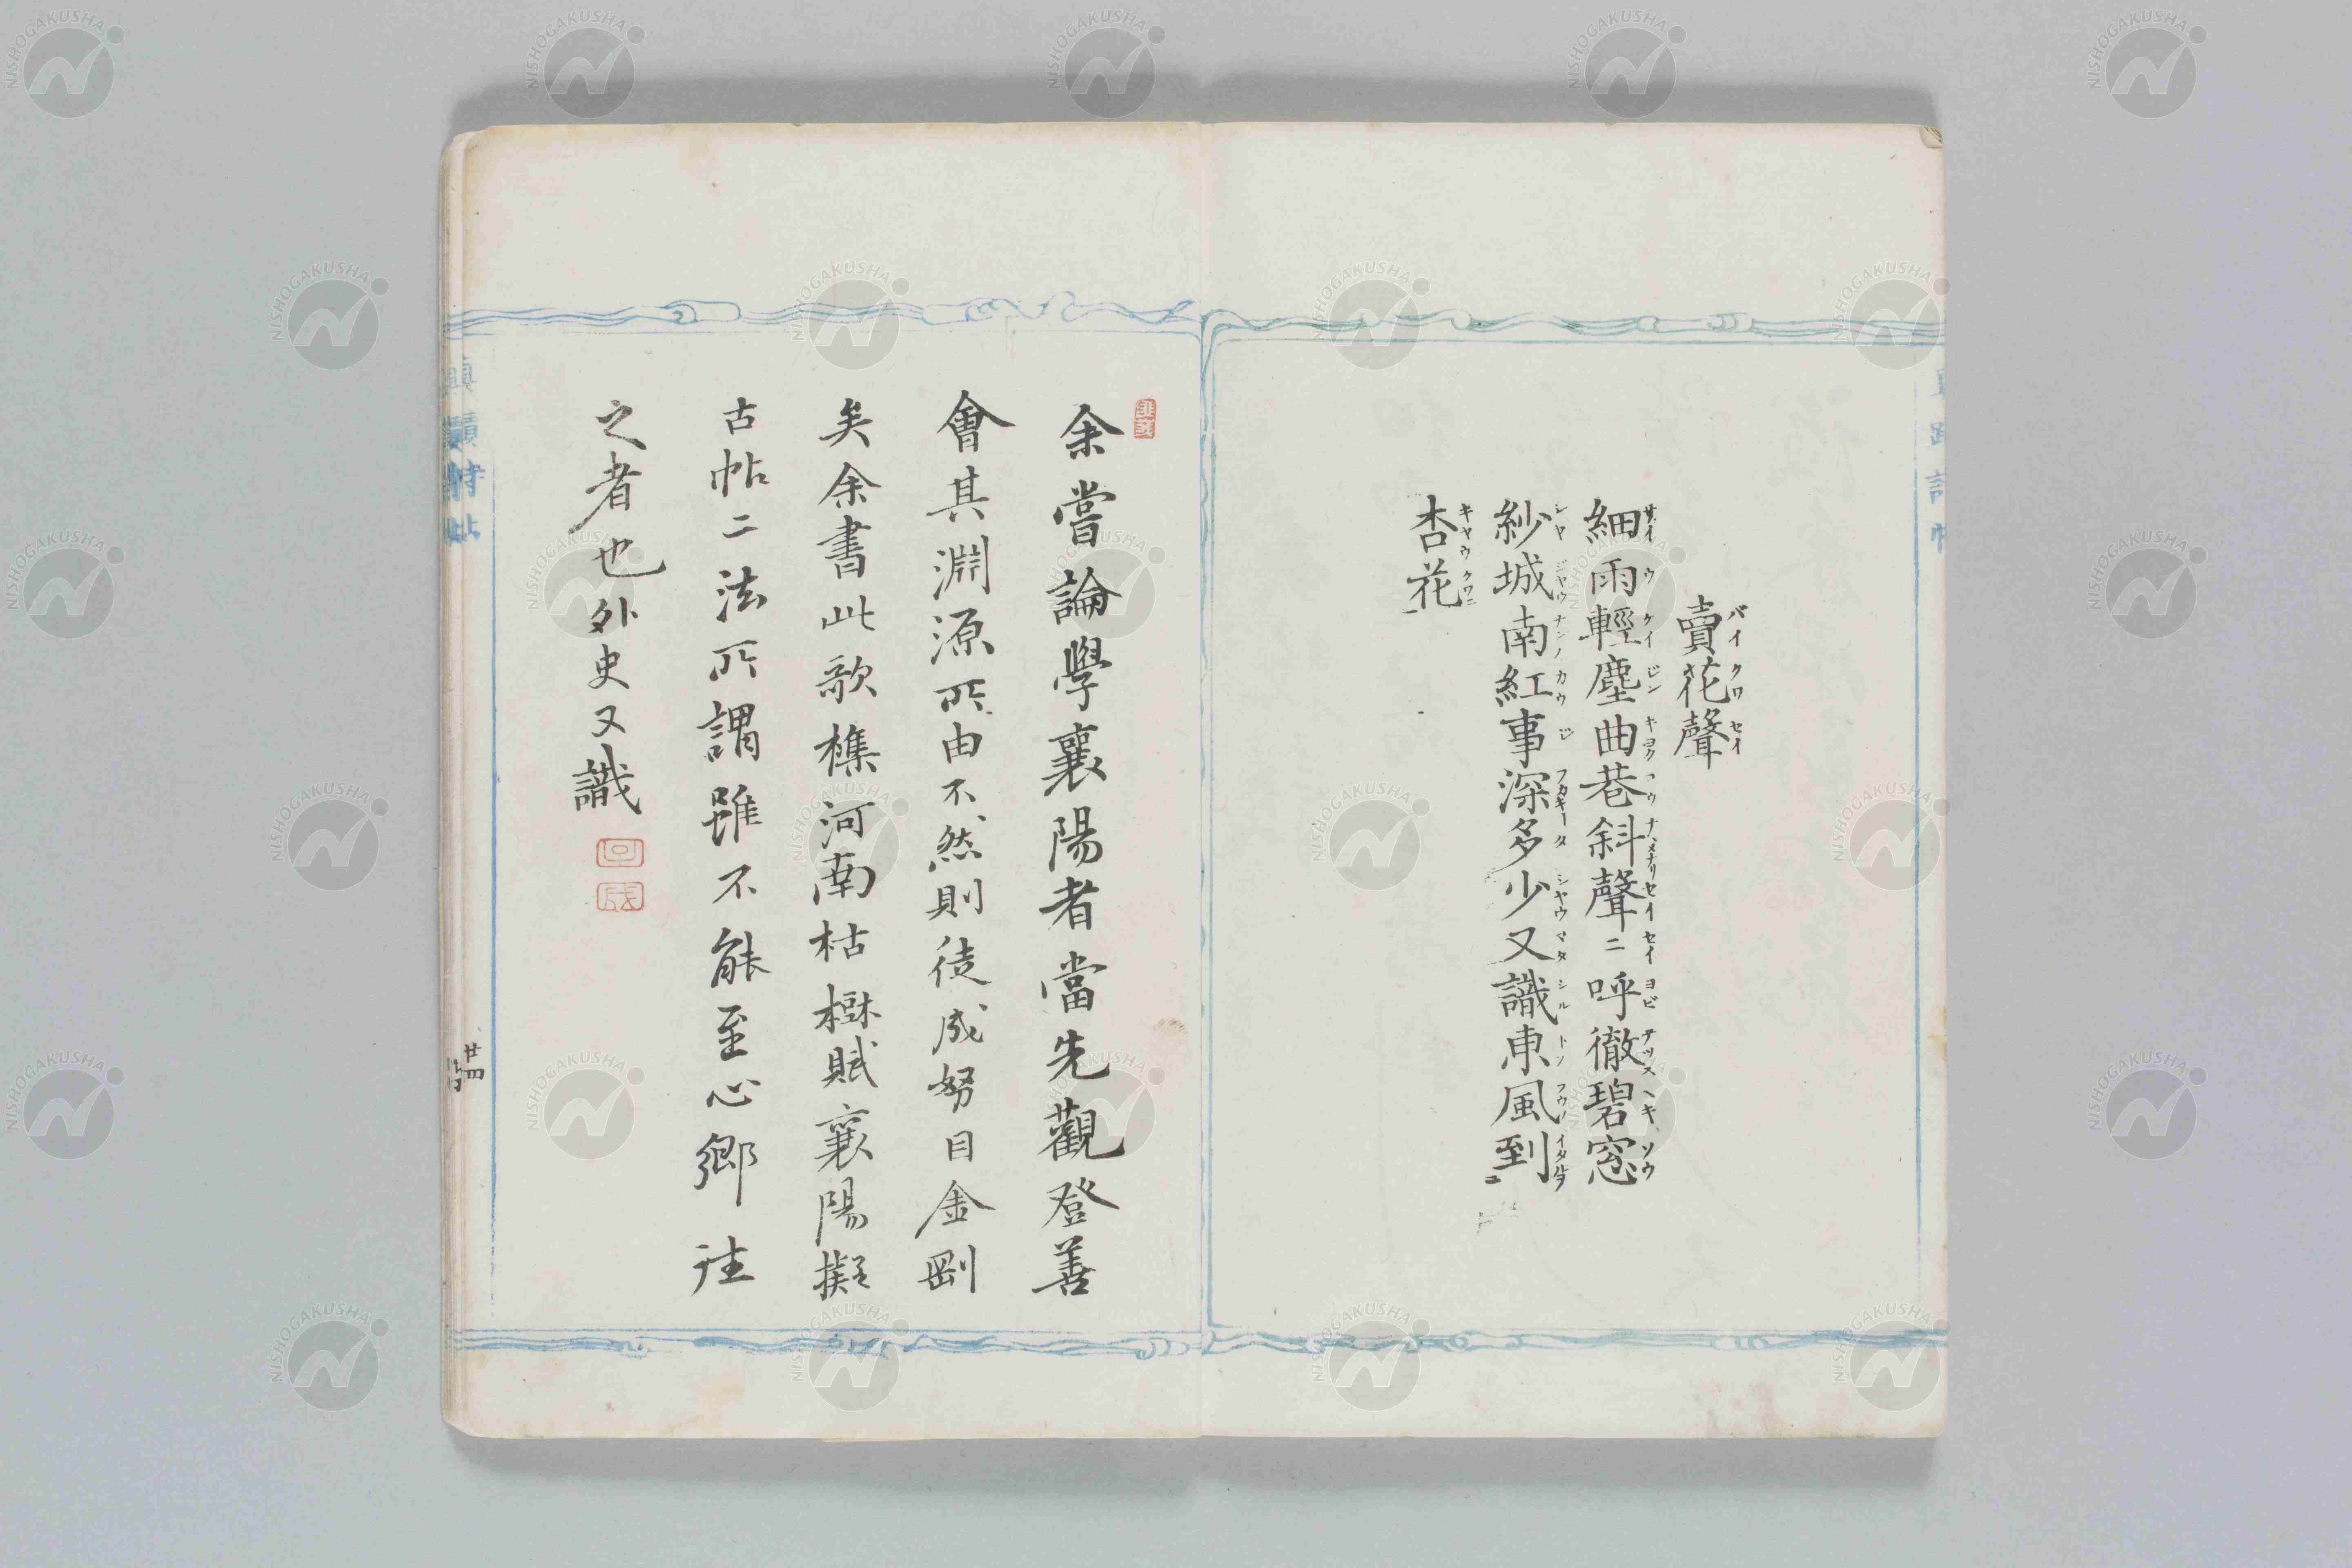 賣花聲
バイクワセイ
細雨輕塵曲巷斜聲〻呼徹碧窓
紗城南紅事深多少又識東風到
杏花
キヤウクワニ
余嘗論學襄陽者當先觀登善
會其淵源所由不然則徒成努目金剛
矣余書此歌樵河南枯樹賦襄陽擬
古帖二法所謂雖不能至心鄉往
之者也外史又識
廿四
NISHOGAKUSHA